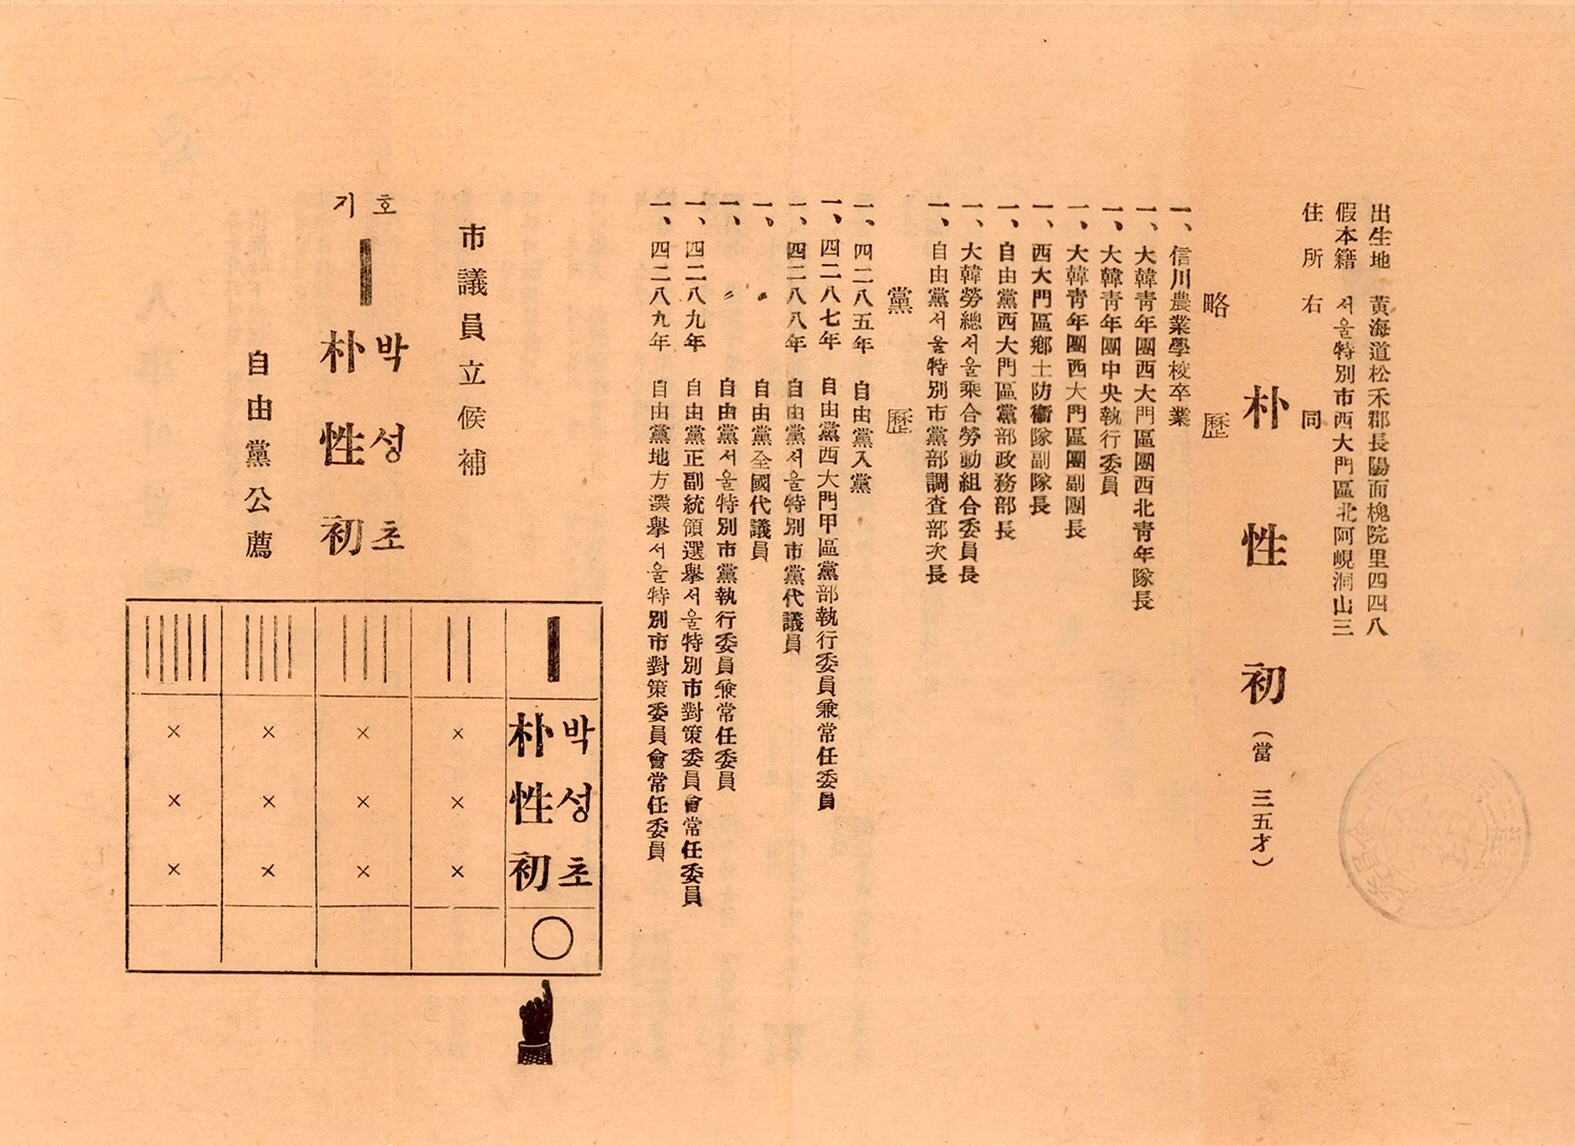 出生地 黃海道松禾郡長陽面槐院里四四八
假本籍 서울特別市西大門區北阿峴洞山三
住所 右同
朴性初 (當 三五才)
略歷
一、信川農業學校卒業
一、大韓靑年團西大門區團西北靑年隊長
一、大韓靑年團中央執行委員
一、大韓靑年團西大門區團副團長
一、西大門區鄕土防衛隊副隊長
一、自由黨西大門區黨部政務部長
一、大韓勞總서울乘合勞動組合委員長
一、自由黨서울特別市黨部調査部次長
黨歷
一、四二八五年 自由黨入黨
一、四二八七年 自由黨西大門甲區黨部執行委員兼常任委員
一、四二八八年 自由黨서울特別市黨代議員
一、〃 自由黨全國代議員
一、〃 自由黨서울特別市黨執行委員兼常任委員
一、四二八九年 自由黨正副統領選擧서울特別市對策委員會常任委員
一、四二八九年 自由黨地方選擧서울特別市對策委員會常任委員
市議員立候補
기호 |
박성초
朴性初
自由黨公薦
| 박성초 朴性初 ○
|| × × ×
||| × × ×
|||| × × ×
||||| × × ×